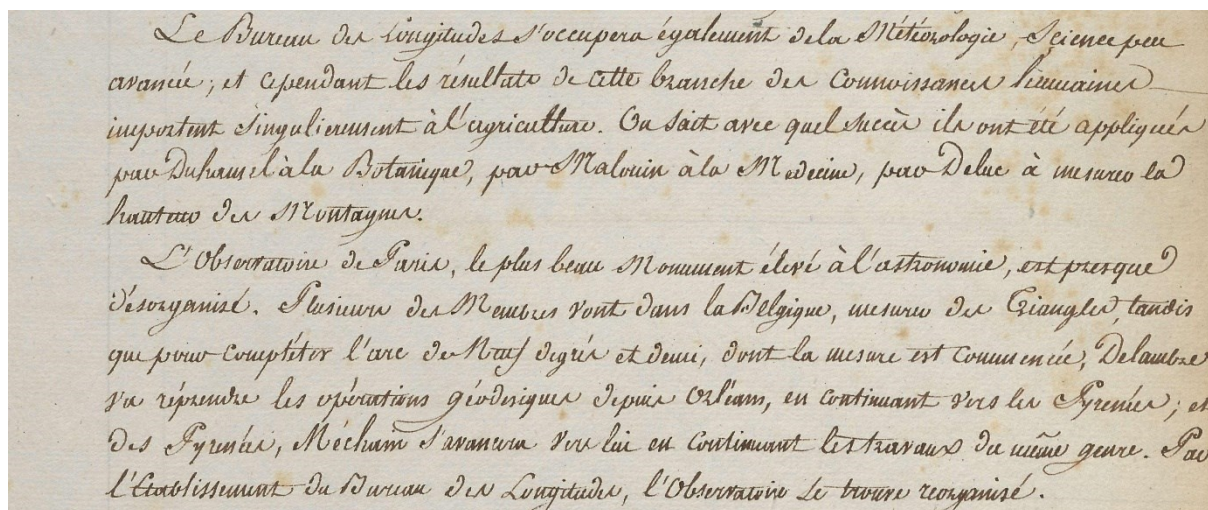 Le Bureau des Longitudes s'occupera également de la Météorologie, Science peu
avancée; et cependant les résultats de cette branche des Connoissances humaines
importent singulierement à l'agriculture. On sait avec quel succès ils ont été appliqués
par Duhamel à la Botanique, par Malouin à la Medecine, par Deluc à mesurer la
hauteur des Montagnes.
L'Observatoire de Paris, le plus beau Monument élevé à l'astronomie, est presque
désorganisé. Plusieurs des Membres vont dans la Belgique, mesurer des Triangles tandis
que pour compléter l'arc de Neuf degrés et demi, dont la mesure est commencée, Delambre
va réprendre les opérations géodésiques depuis Orléans, en continuant vers les Pyrenées; et
des Pyrenées, Méchain s'avancera vers lui en continuant les travaux du même genre. Par
l'Etablissement du Bureau des Longitudes, l'Observatoire se trouve reorganisé.